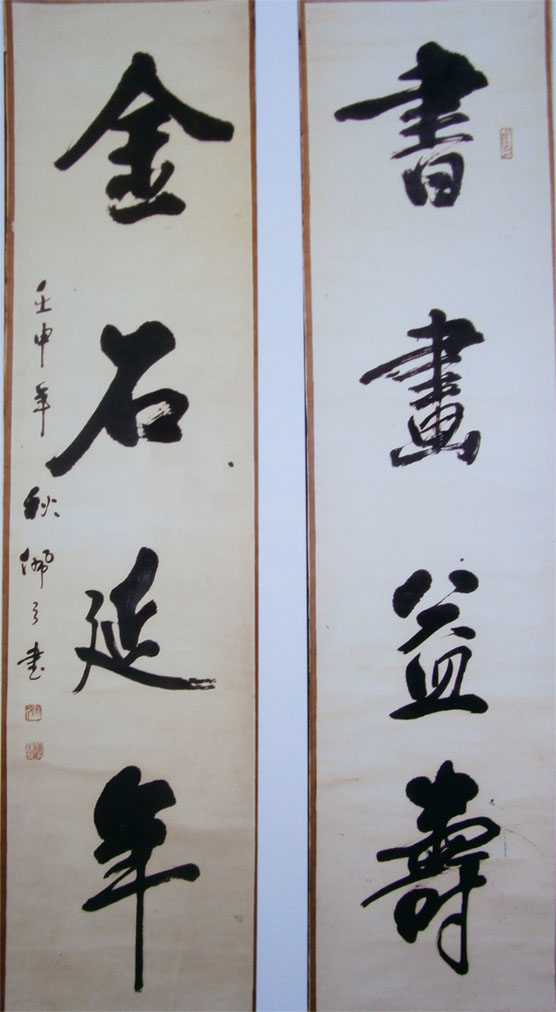 書畫益壽
金石延年
壬申年秋佛弓書